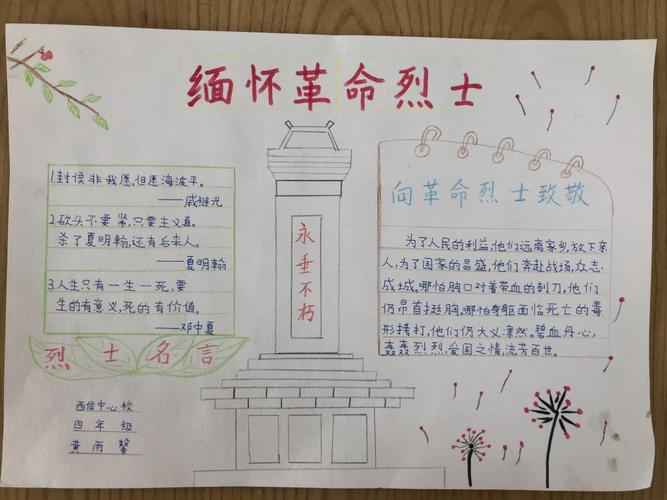 缅怀革命烈士
1.封侯非我愿,但愿海波平。
——戚继光
2.砍头不要紧,只要主义真。
杀了夏明翰,还有后来人。
——夏明翰
3.人生只有一生一死,要
生的有意义,死的有价值。
——邓中夏
烈士名言
西位中心校
四年级
黄雨馨
永垂不朽
向革命烈士致敬
为了人民的利益,他们远离家乡,放下亲
人,为了国家的昌盛,他们奔赴战场,众志
成城,哪怕胸口对着带血的刺刀,他们
仍昂首挺胸,哪怕身躯面临死亡的毒
形拷打,他们仍大义凛然。碧血丹心,
轰轰烈烈,爱国之情,流芳百世。